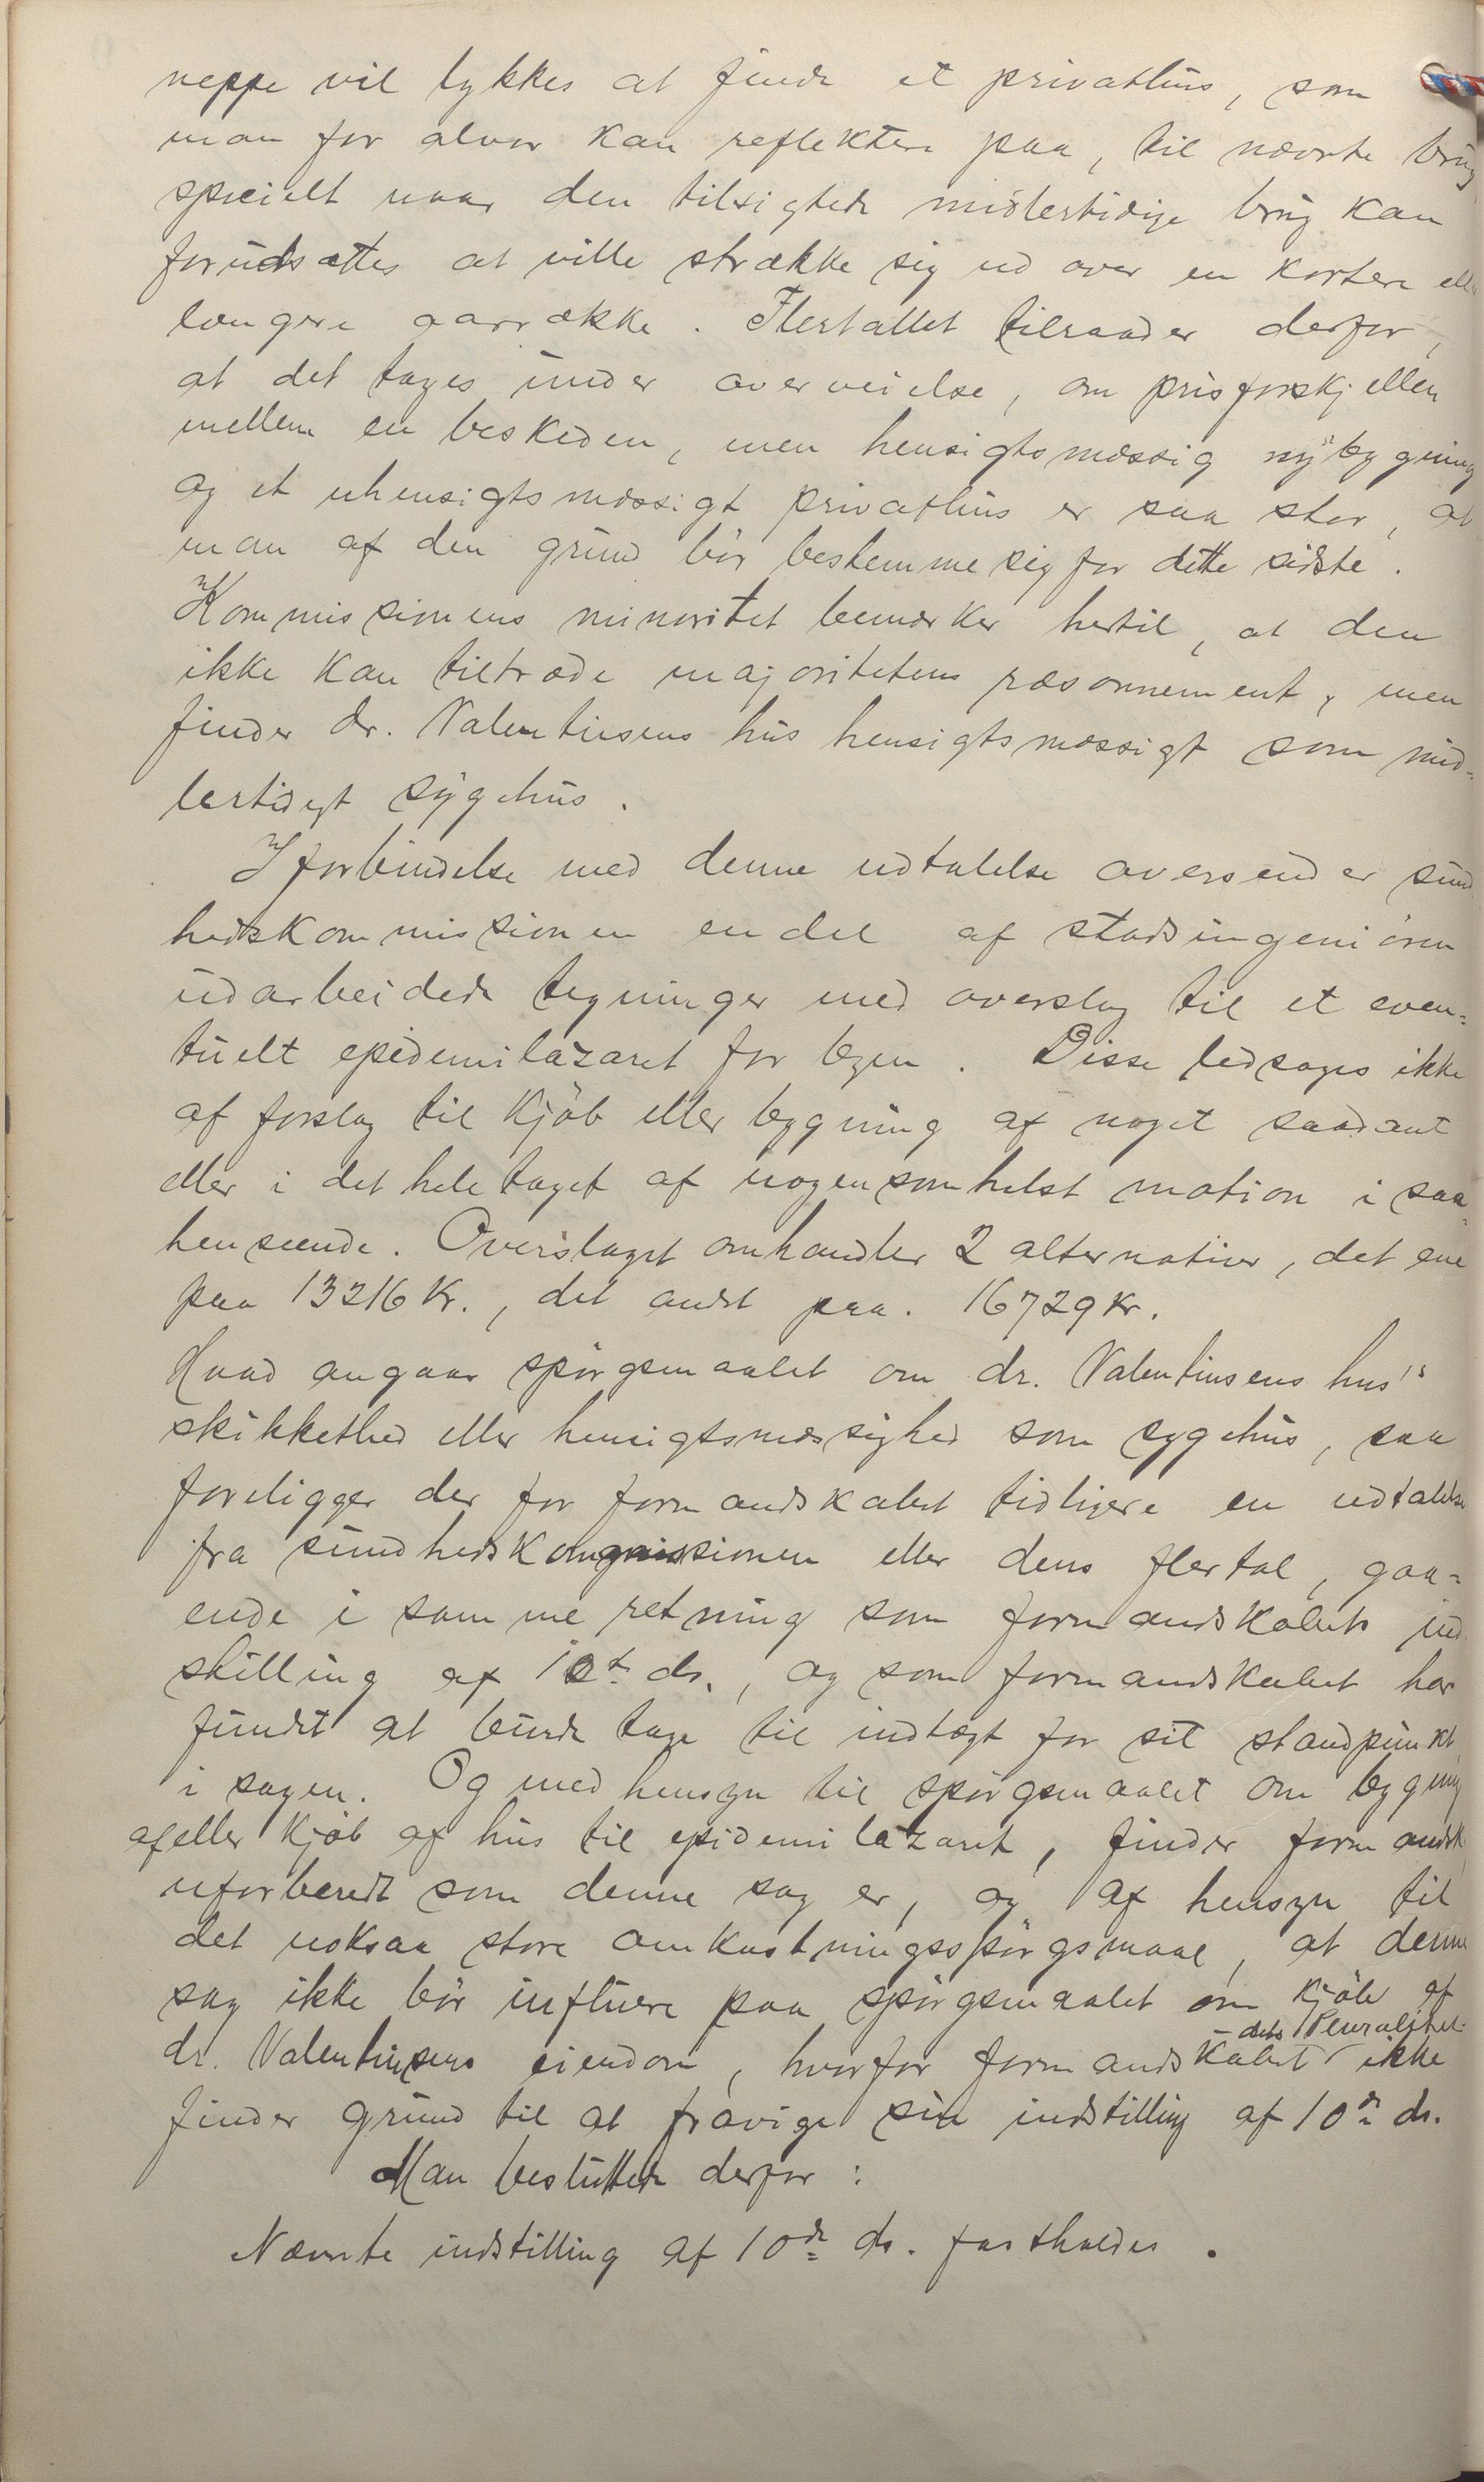 neppe vil lykkes at finde et privathus, som
man for alvor kan reflektere paa, til nævnte brug
specielt naar den tilsigtede midlertidige brug kan
forudsættes at ville strække sig ud over en kortere ell
længere aarrække. Flertallet tilraader derfor,
at det tages under overveielse, om prisforskjellen
mellem en beskeden, men hensigtsmæssig nybygning
og et uhensigtsmæssigt privathus er saa stor, at
man af den grund bör bestemme sig for dette sidste.
Kommissionens minoritet bemærker hertil, at den
ikke kan tiltræde majoritetens ræsonnement, men
finder dr. Valentinsens hus hensigtsmæssigt som mid=
lertidigt sygehus.
I forbindelse med denne udtalelse oversender sund
hedskommissionen en del af stadsingeniören
udarbeidede tegninger med overslag til et even=
tuelt epidemilazaret for byen. Disse ledsages ikke
af forslag til kjöb eller bygning af noget saadant
eller i det hele taget af nogensomhelst motion i saa
henseende. Overslaget omhandler 2 alternativer, det ene
paa 13216 kr., det andet paa. 16729 kr.
Hvad angaar spörgsmaalet om dr. Valentinsens hus's
skikkethed eller hensigtsmæssighed som sygehus, saa
foreligger der for formandskabet tidligere en udtalelse
fra sundhedskommissionen eller dens flertal, gaa=
ende i samme retning som formandskabets ind
stilling af 10de ds., og som formandskabet har
fundet at burde tage til indtægt for sit standpunkt
i sagen. Og med hensyn til spörgsmaalet om bygning
af eller kjöb af hus til epidemilazaret, finder formandsk
uforberedt som denne sag er, og af hensyn til
det noksaa store omkostningsspörgsmaal, at denne
sag ikke bör influere paa spörgsmaalet om kjöb af
dr. Valentinsens eiendom, hvorfor formandskabet - dets Pluralitet - ikke
finder grund til at fravige sin indstilling af 10de ds.
Man besluttede derfor:
Nævnte indstilling af 10de ds. fastholdes.